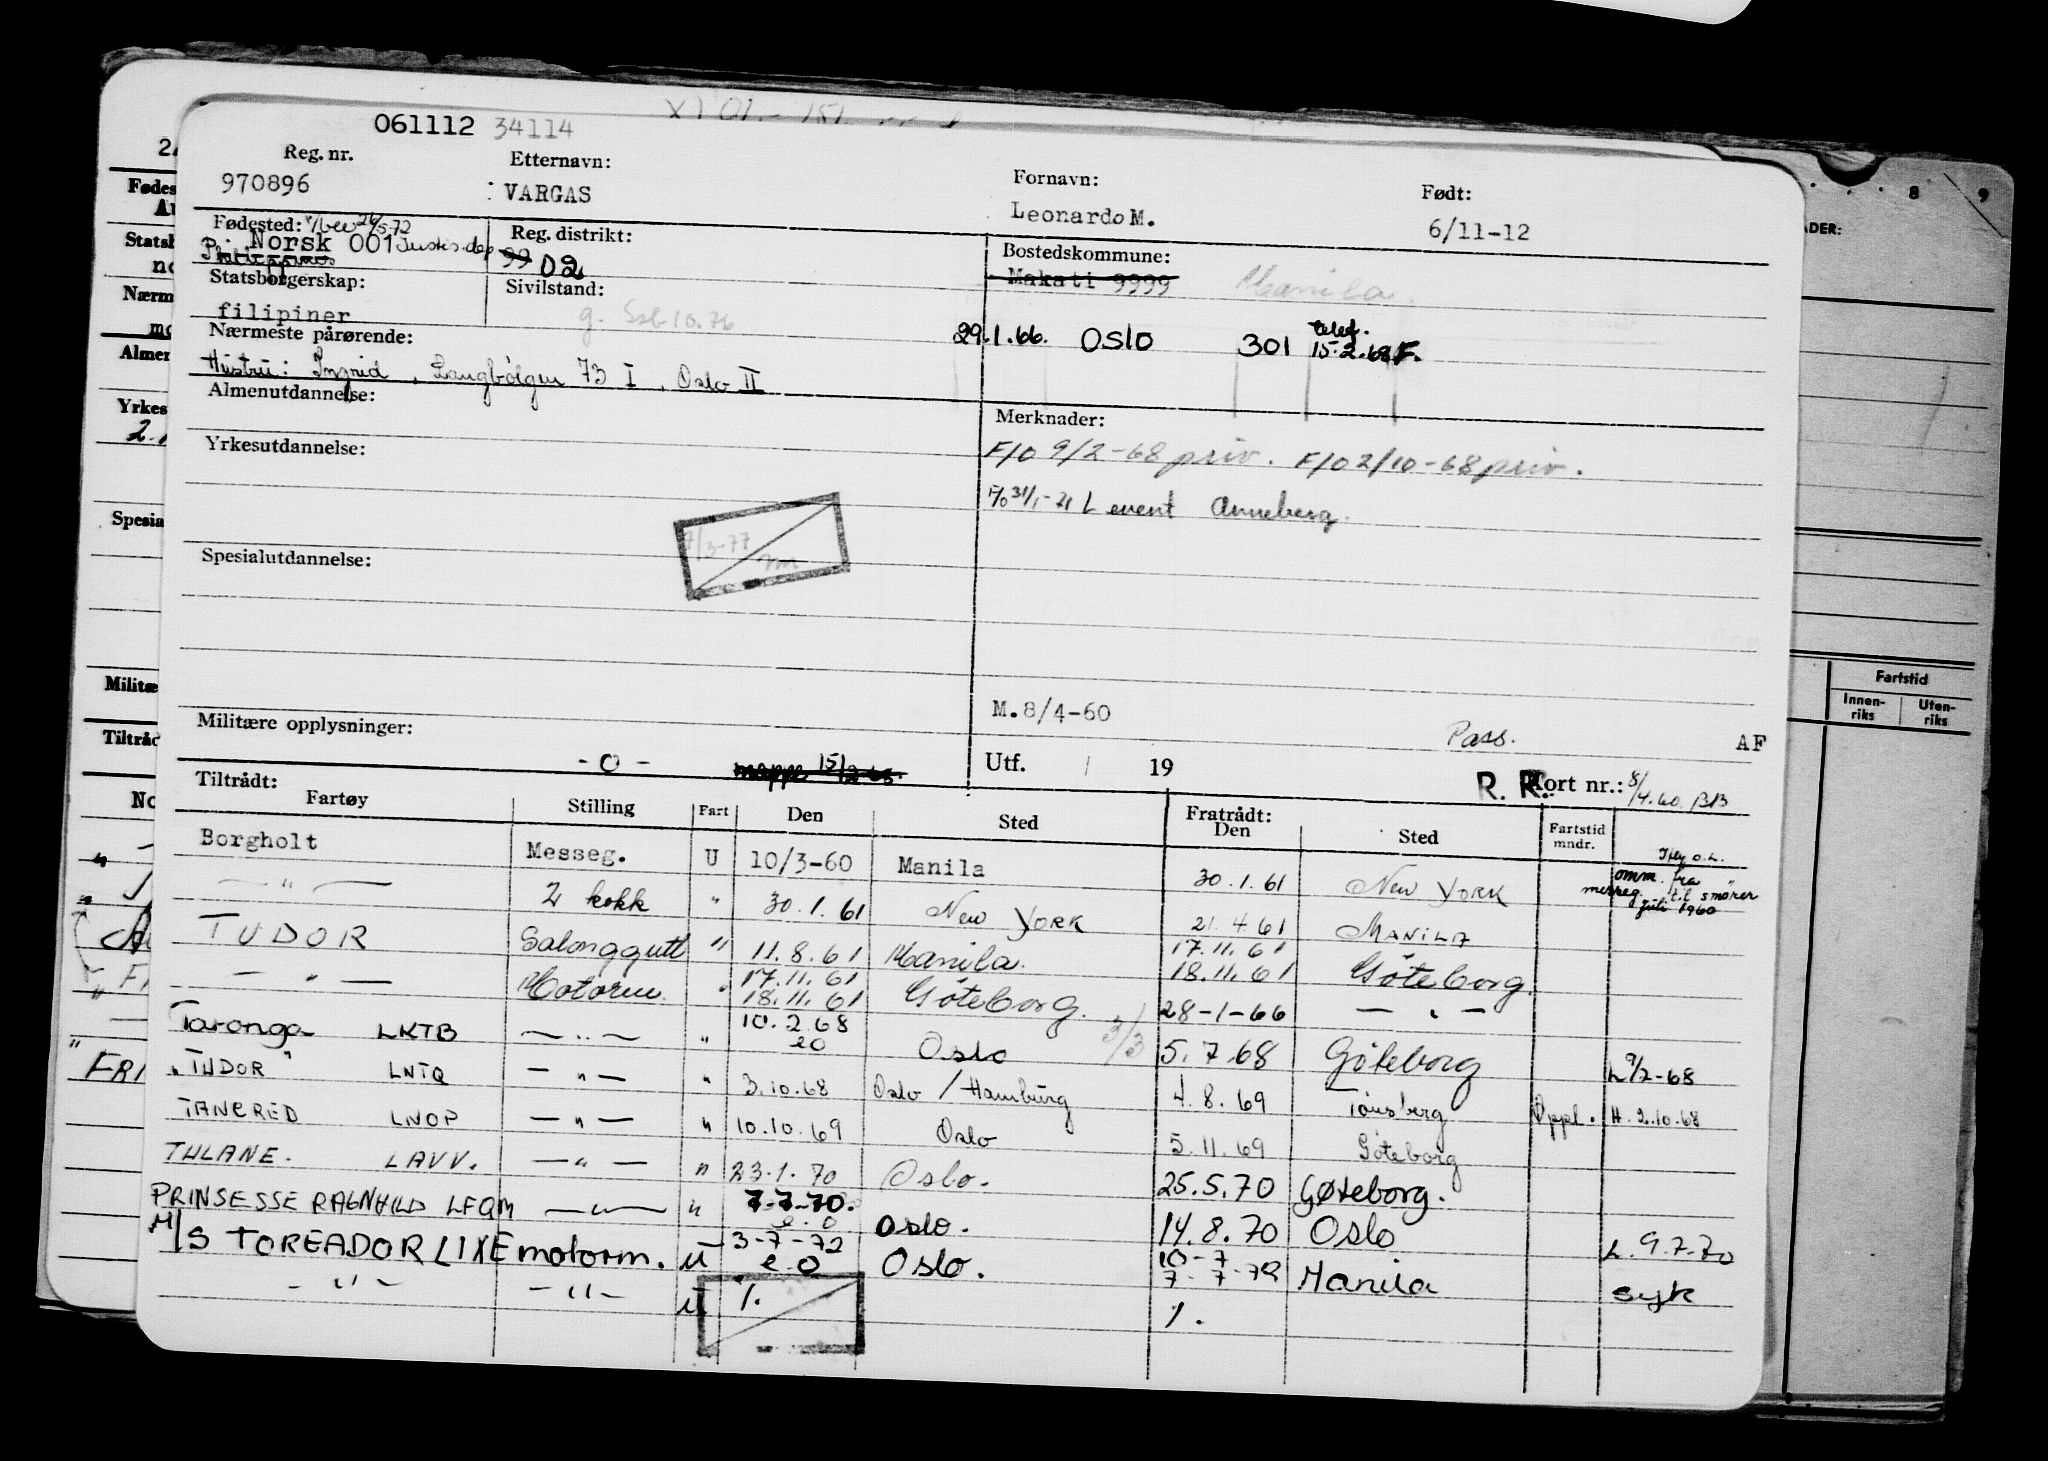 061112 34114
Reg. nr.
970896
Etternavn:
VARGAS
Fornavn:
Leonardo M.
Født:
6/11-12
Fødested:
Norsk 001 Justis.dep
26/5-72
Reg. distrikt:
99 02
Bostedskommune:
Makati 9999
Manila
Statsborgerskap:
filipiner
Sivilstand:
g.
29.1.66. OSLO 301 15.2.68 F.
Nærmeste pårørende:
Hustru: Ingrid, Langbølgen 73 I, Oslo II
Almenutdannelse:
Merknader:
F/O 9/2-68 priv. F/O 2/10-68 priv.
Yrkesutdannelse:
L event Anneberg.
7/3-77
Spesialutdannelse:
M.8/4-60
Pass.
AF
Militære opplysninger:
- 0 -
mappe 15/2-65.
Utf. / 19
R. R. Kort nr.: 8/4.60. BB
Tiltrådt:
Fartøy Stilling Fart Den Sted Fratrådt: Den Sted Fartstid mndr.
Borgholt Messeg. U 10/3-60 Manila 30.1.61 New York omm. fra messeg. til smører juli 1960
— " — 2 kokk " 30.1.61 New York 21.4.61 Manila
TUDOR Salonggutt " 11.8.61 Manila. 17.11.61 18.11.61 Göteborg.
— " — Motorm. " 17.11.61 18.11.61 Göteborg. 28-1-66 — " —
Taronga LKTB — " — " 10.2.68 eo Oslo 3/3 5.7.68 Göteborg L 9/2-68
"TUDOR" LNTQ — " — " 3.10.68 Oslo / Hamburg 4.8.69 Tönsberg Oppl. H. 2.10.68
TANCRED LNOP — " — " 10.10.69 Oslo 5.11.69 Göteborg
TULANE. LAVV. — " — " 23.1.70 Oslo. 25.5.70 Gøteborg.
PRINSESSE RAGNHILD LFQM — " — " 7-7-70. e.o Oslo. 14.8.70 Oslo L. 9.7.70
M/S TOREADOR LIXE motorm. U 3-7-72 e.o Oslo. 10-7 7-7-72 Manila syk
— " — — " — U /. /.
8 9
ADER:
Fartstid
Innen-riks Uten-riks